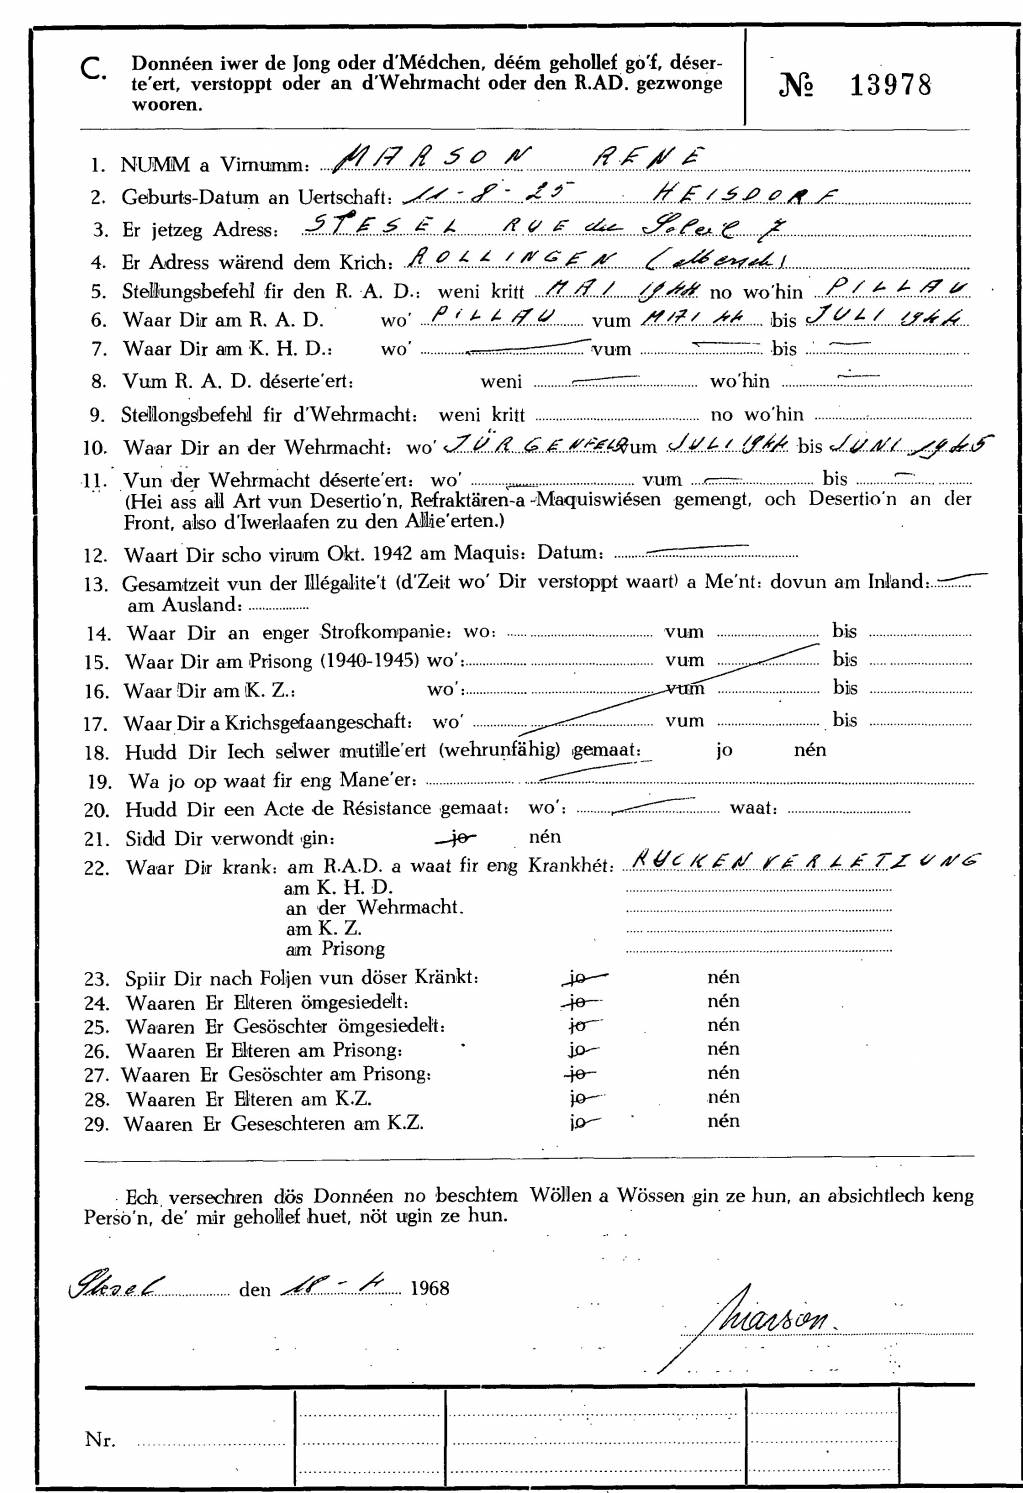 C. Donnéen iwer de Jong oder d'Médchen, déém gehollef go'f, déser-
te'ert, verstoppt oder an d'Wehrmacht oder den R.AD. gezwonge
wooren.
№ 13978
1. NUMM a Virnumm: MARSON RENE
2. Geburts-Datum an Uertschaft: 11-8-25 HEISDORF
3. Er jetzeg Adress: STESEL RUE du Soleil 7
4. Er Adress wärend dem Krich: ROLLINGEN
5. Stellungsbefehl fir den R. A. D.: weni kritt MAI 1944 no wo'hin PILLAU
6. Waar Dir am R. A. D. wo' PILLAU vum MAI 44 bis JULI 1944
7. Waar Dir am K. H. D.: wo' vum bis
8. Vum R. A. D. déserte'ert: weni wo'hin
9. Stellongsbefehl fir d'Wehrmacht: weni kritt no wo'hin
10. Waar Dir an der Wehrmacht: wo' JÜRGENFELD vum JULI 1944 bis JUNI 1945
11. Vun der Wehrmacht déserte'ert: wo' vum bis
(Hei ass all Art vun Desertio'n, Refraktären-a-Maquiswiésen gemengt, och Desertio'n an der
Front, also d'Iwerlaafen zu den Allie'erten.)
12. Waart Dir scho virum Okt. 1942 am Maquis: Datum:
13. Gesamtzeit vun der Illégalite't (d'Zeit wo' Dir verstoppt waart) a Me'nt: dovun am Inland:
am Ausland:
14. Waar Dir an enger Strofkompanie: wo: vum bis
15. Waar Dir am Prisong (1940-1945) wo': vum bis
16. Waar Dir am K. Z.: wo': vum bis
17. Waar Dir a Krichsgefaangeschaft: wo' vum bis
18. Hudd Dir Iech selwer mutille'ert (wehrunfähig) gemaat: jo nén
19. Wa jo op waat fir eng Mane'er:
20. Hudd Dir een Acte de Résistance gemaat: wo': waat:
21. Sidd Dir verwondt gin: jo nén
22. Waar Dir krank: am R.A.D. a waat fir eng Krankhét: RUCKENVERLETZUNG
am K. H. D.
an der Wehrmacht.
am K. Z.
am Prisong
23. Spiir Dir nach Foljen vun döser Kränkt: jo nén
24. Waaren Er Elteren ömgesiedelt: jo nén
25. Waaren Er Gesöschter ömgesiedelt: jo nén
26. Waaren Er Elteren am Prisong: jo nén
27. Waaren Er Gesöschter am Prisong: jo nén
28. Waaren Er Elteren am K.Z. jo nén
29. Waaren Er Geseschteren am K.Z. jo nén
Ech versechren dös Donnéen no beschtem Wöllen a Wössen gin ze hun, an absichtlech keng
Perso'n, de' mir gehollef huet, nöt ugin ze hun.
Stesel den 18-4 1968
Marson.
Nr.